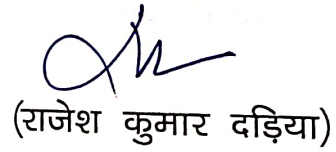 (राजेश कुमार दड़िया)